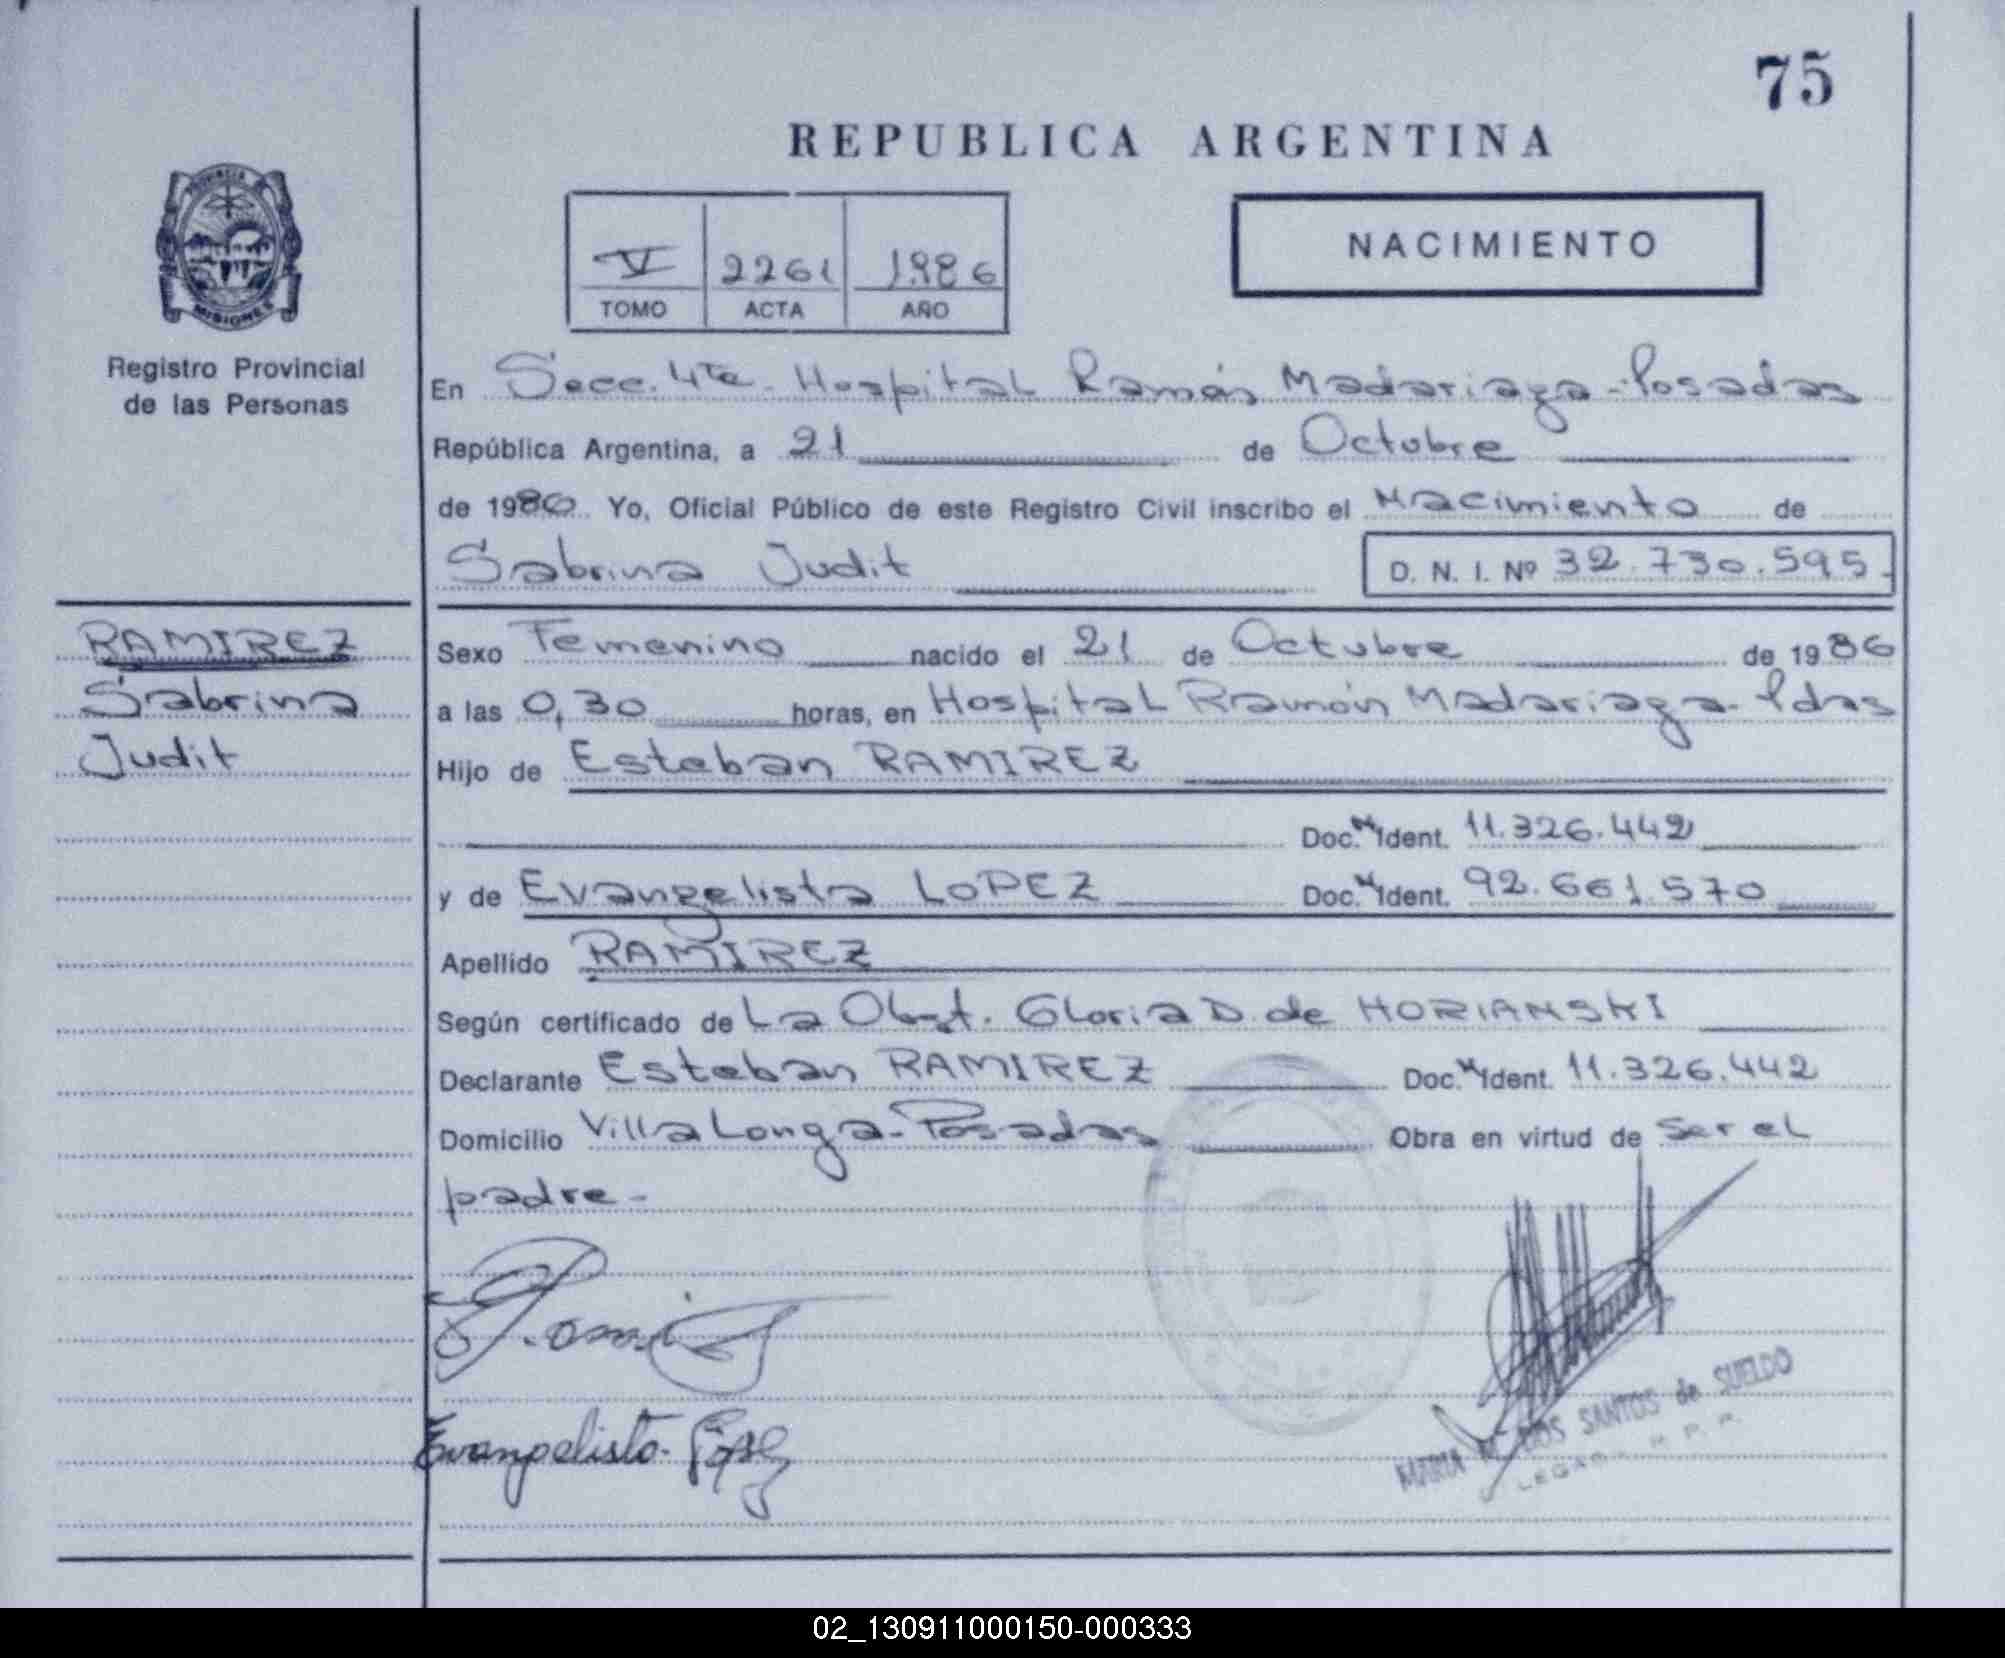 75
REPUBLICA ARGENTINA
V 2261 1986
TOMO ACTA AÑO
NACIMIENTO
PROVINCIA
MISIONES
Registro Provincial
de las Personas
En Secc. 4ta. Hospital Ramón Madariaga - Posadas
República Argentina, a 21 de Octubre
de 1986. Yo, Oficial Público de este Registro Civil inscribo el Nacimiento de
Sabrina Judit D. N. I. Nº 32.730.595.
RAMIREZ
Sabrina
Judit
Sexo Femenino nacido el 21 de Octubre de 1986
a las 0,30 horas, en Hospital Ramón Madariaga - Pdas
Hijo de Esteban RAMIREZ
Doc. N. Ident. 11.326.442
y de Evangelista LOPEZ Doc. N. Ident. 92.661.570
Apellido RAMIREZ
Según certificado de La Obst. Gloria D. de HORIANSKI
Declarante Esteban RAMIREZ Doc. N. Ident. 11.326.442
Domicilio Villa Longa - Posadas Obra en virtud de ser el
padre -
Evangelista López
MARIA DOS SANTOS de SUELDO
02_130911000150-000333